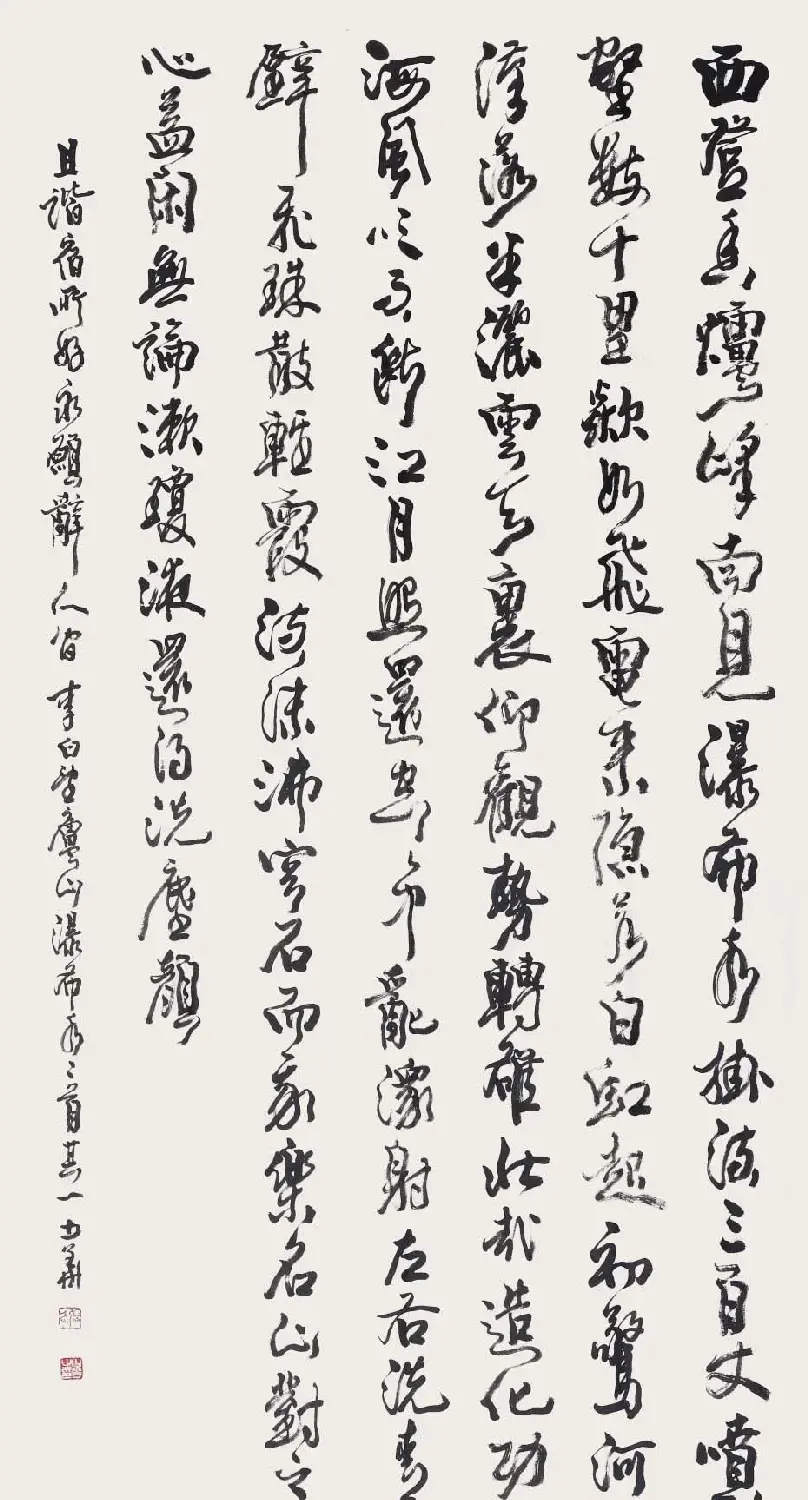 西登香爐峰南見瀑布水掛流三百丈噴
壑數十里歘如飛電來隱若白虹起初驚河
漢落半灑雲天裏仰觀勢轉雄壯哉造化功
海風吹不斷江月照還空々中亂潨射左右洗青
壁飛珠散輕霞流沫沸穹石而我樂名山對之
心益閑無論漱瓊液還得洗塵顏
且諧宿所好永願辭人間 李白望廬山瀑布水二首其一